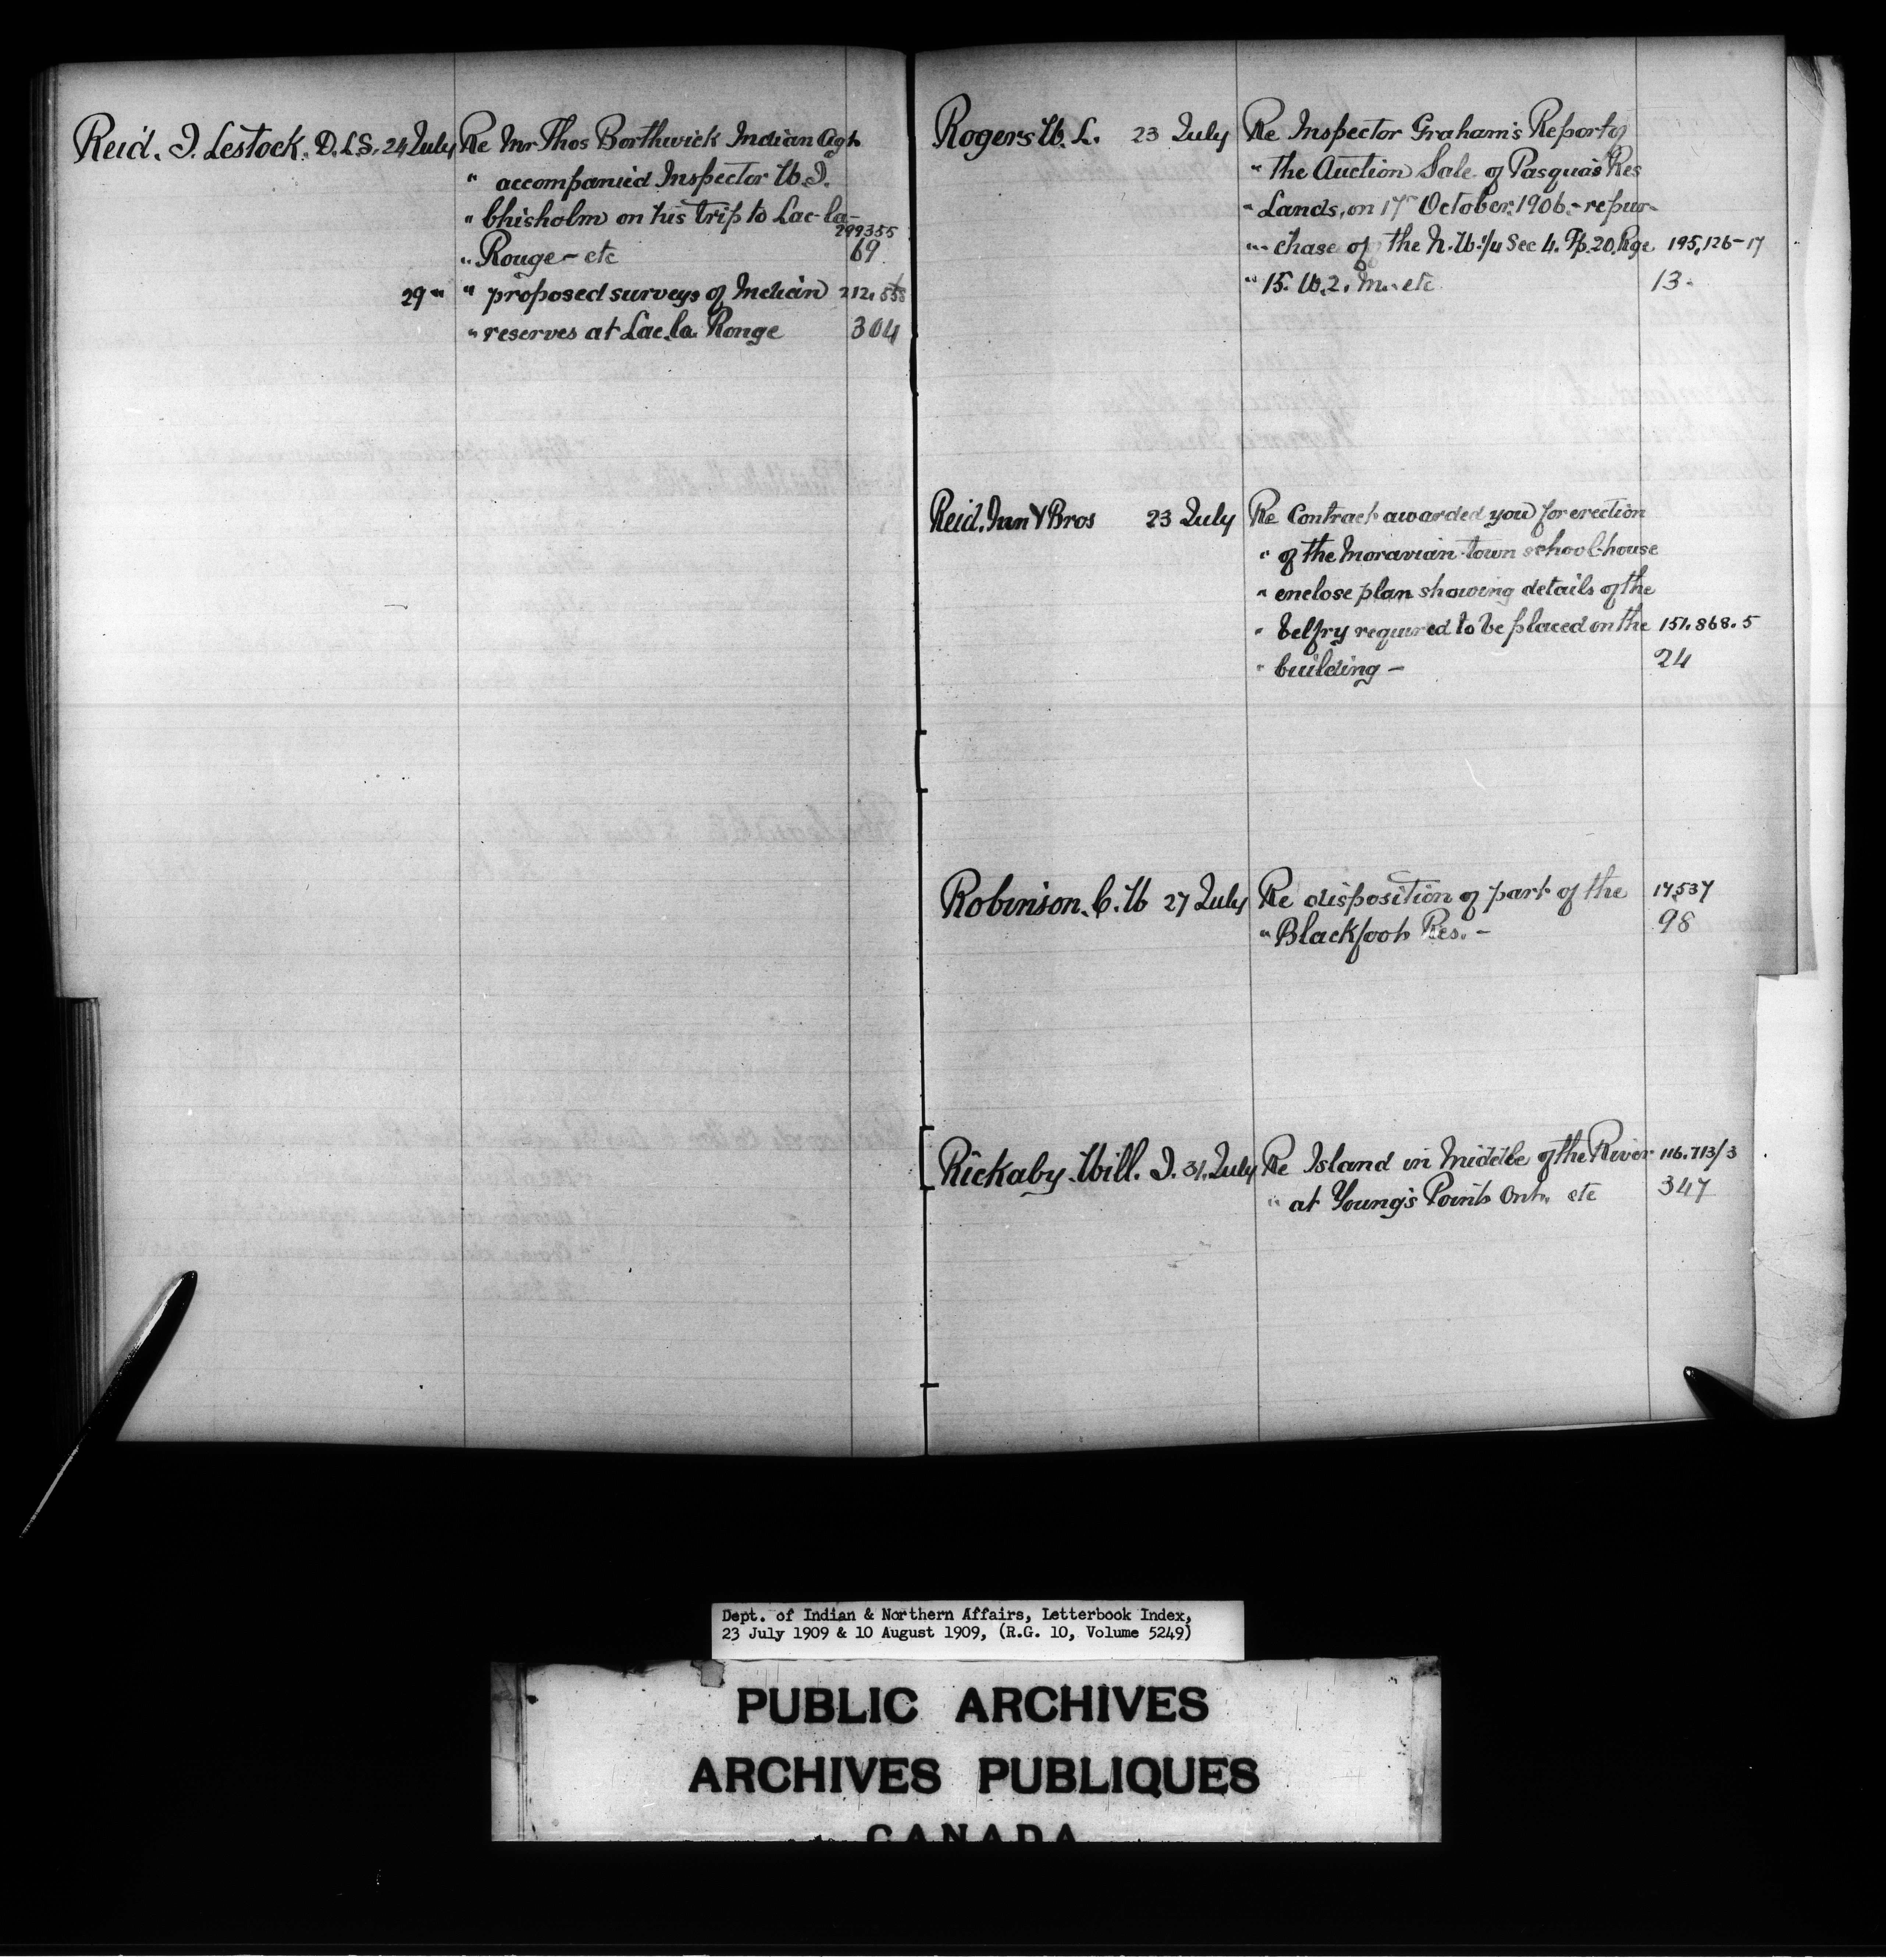 Reid. J. Lestock. D.L.S. 24 July Re Mr Thos Borthwick Indian Agt
" accompanied Inspector W. J.
" Chisholm on his trip to Lac-la-
299355
" Rouge - etc 69
29 " " proposed surveys of Indian 212.558
" reserves at Lac la Ronge 304
Rogers W. L. 23 July Re Inspector Graham's Report of
" the Auction Sale of Pasqua's Res
" Lands, on 17th October. 1906. - repur-
" chase of the N.W. 1/4 Sec 4. Tp. 20, Rge 195,126-17
" 15. W. 2. M. etc 13.
Reid. & Bros 23 July Re Contract awarded you for erection
" of the Moravian town school-house
" enclose plan showing details of the
" belfry required to be placed on the 151.868.5
" building - 24
Robinson. C. W 27 July Re disposition of part of the 17537
" Blackfoot Res. - 98
Rickaby. Will. J. 31. July Re Island in middle of the River 116.713/3
" at Young's Point Ont. etc 347
Dept. of Indian & Northern Affairs, Letterbook Index,
23 July 1909 & 10 August 1909, (R.G. 10, Volume 5249)
PUBLIC ARCHIVES
ARCHIVES PUBLIQUES
CANADA